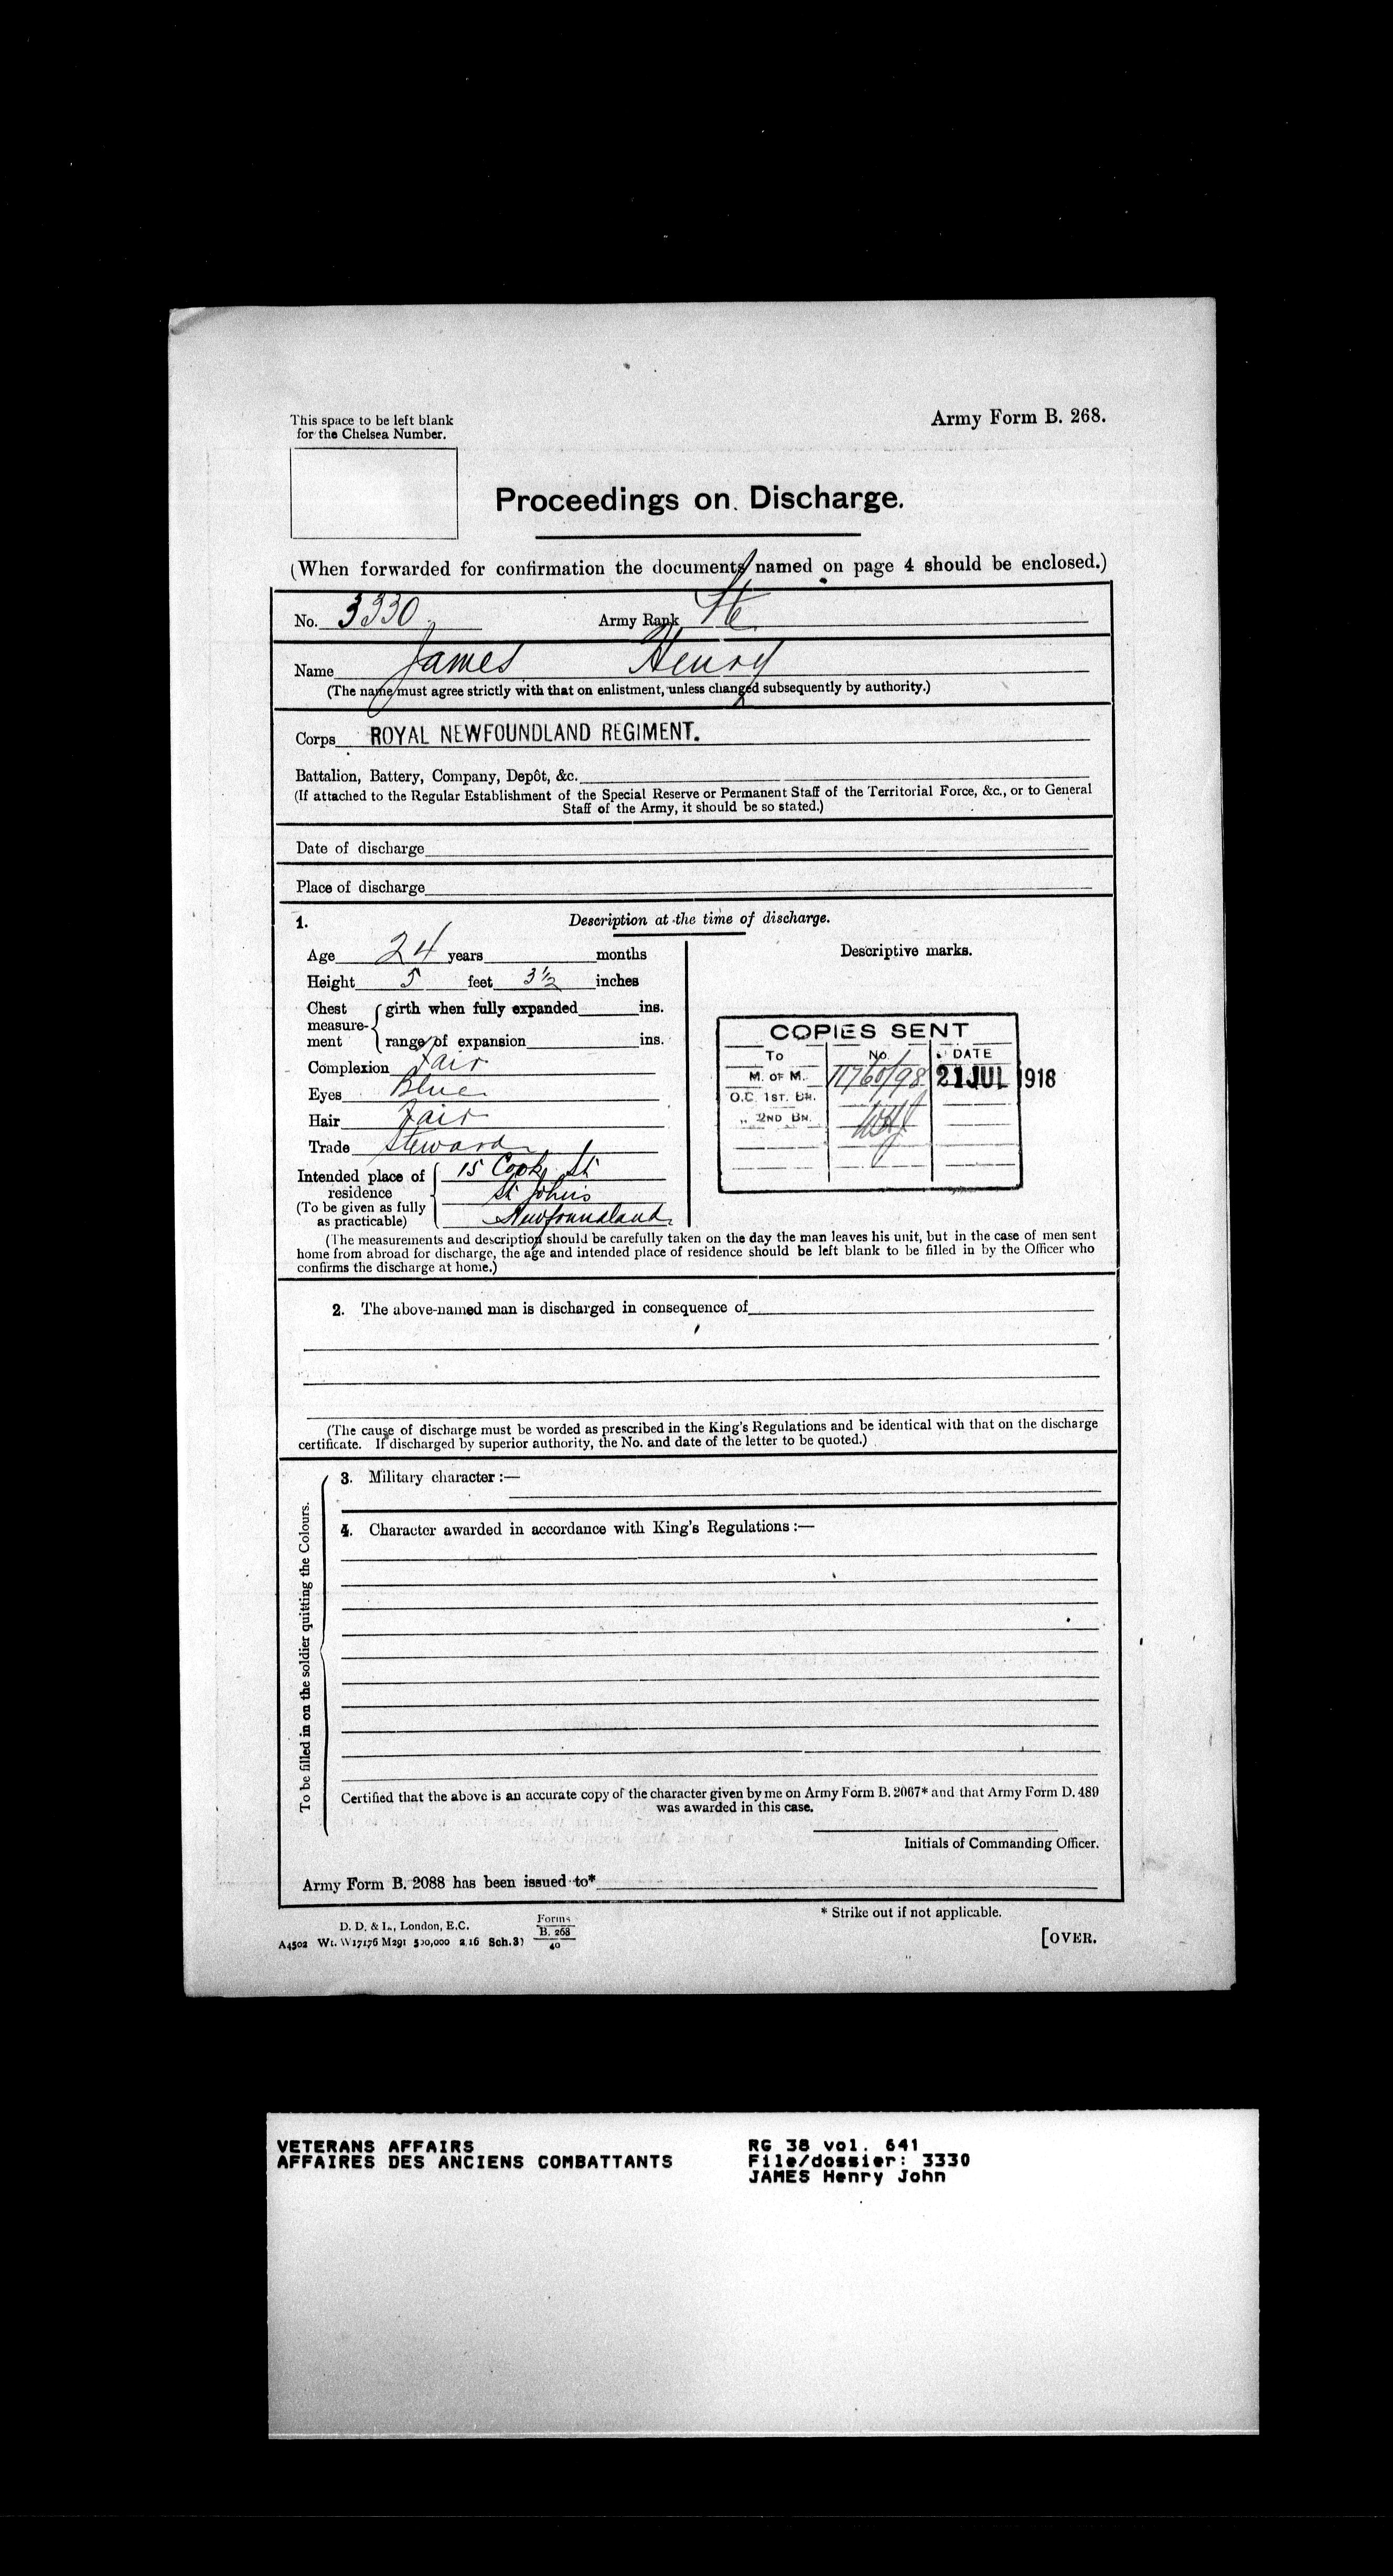 This space to be left blank
for the Chelsea Number.
Army Form B. 268.
Proceedings on Discharge.
(When forwarded for confirmation the documents named on page 4 should be enclosed.)
No. 3330 Army Rank Pte
Name James Henry
(The name must agree strictly with that on enlistment, unless changed subsequently by authority.)
Corps ROYAL NEWFOUNDLAND REGIMENT.
Battalion, Battery, Company, Depôt, &c.
(If attached to the Regular Establishment of the Special Reserve or Permanent Staff of the Territorial Force, &c., or to General
Staff of the Army, it should be so stated.)
Date of discharge
Place of discharge
1. Description at the time of discharge.
Age 24 years months
Height 5 feet 3½ inches
Chest measurement girth when fully expanded ins.
range of expansion ins.
Complexion Fair
Eyes Blue
Hair Fair
Trade Steward
Intended place of residence
(To be given as fully as practicable)
15 Cook St
St Johns
Newfoundland
Descriptive marks.
COPIES SENT
To No. DATE
M. OF M. 21 JUL 1918
O.C. 1ST. BN.
„ 2ND BN.
(The measurements and description should be carefully taken on the day the man leaves his unit, but in the case of men sent
home from abroad for discharge, the age and intended place of residence should be left blank to be filled in by the Officer who
confirms the discharge at home.)
2. The above-named man is discharged in consequence of
(The cause of discharge must be worded as prescribed in the King's Regulations and be identical with that on the discharge
certificate. If discharged by superior authority, the No. and date of the letter to be quoted.)
To be filled in on the soldier quitting the Colours.
3. Military character :—
4. Character awarded in accordance with King's Regulations :—
Certified that the above is an accurate copy of the character given by me on Army Form B. 2067* and that Army Form D. 489
was awarded in this case.
Initials of Commanding Officer.
Army Form B. 2088 has been issued to*
* Strike out if not applicable.
D. D. & L., London, E.C.
A4502 Wt. W17176 M291 500,000 2.16 Sch. 31
Forms
B. 268
40
[OVER.
VETERANS AFFAIRS
AFFAIRES DES ANCIENS COMBATTANTS
RG 38 vol. 641
File/dossier: 3330
JAMES Henry John